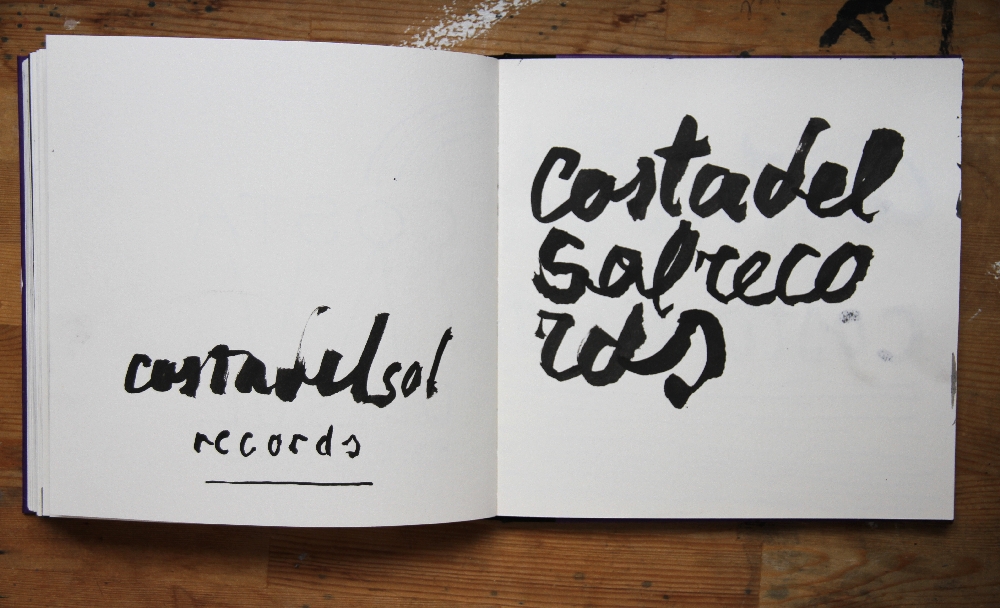 costadelsol
records
costadel
solreco
rds